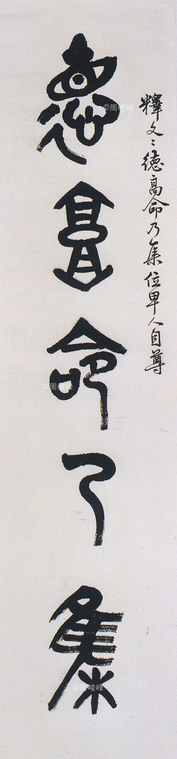 釋文：德高命乃集位卑人自尊
悳高命乃集